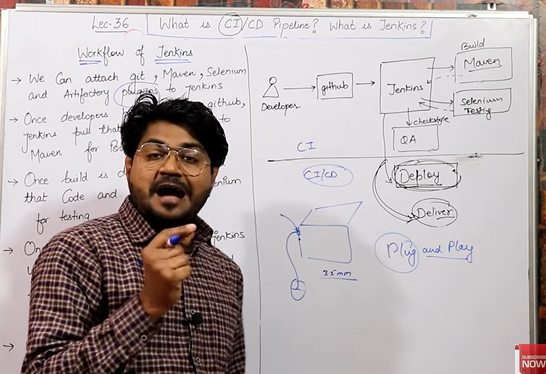 Lec-36 What is CI/CD Pipeline? What is Jenkins?
Workflow of Jenkins
→ We Can attach git, Maven, Selenium
and Artifactory plugins to Jenkins
→ Once developers github,
Jenkins pull that to
Maven for
→ Once build is
that Code and
for testing
→ Jenkins
→
Developer
github
Jenkins
Build
Maven
Selenium
Testing
checkstyle
QA
CI
CI/CD
Deploy
Deliver
3.5mm
Plug and Play
SUBSCRIBE
NOW